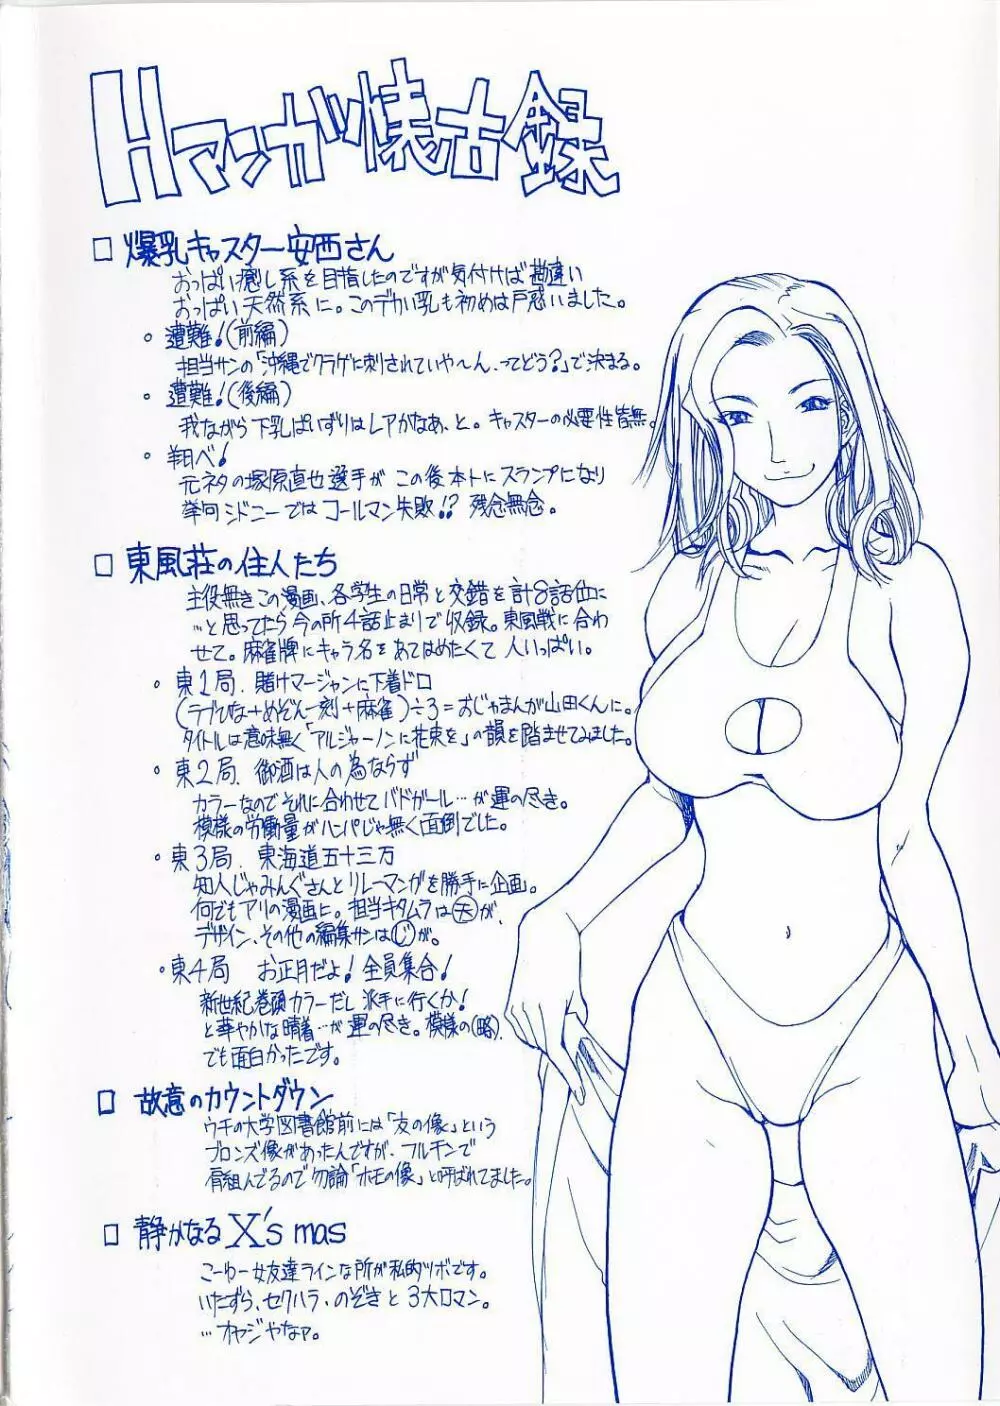 Hマンガ懐古録
□ 爆乳キャスター安西さん
おっぱい癒し系を目指したのですが気付けば勘違い
おっぱい天然系に。このデカい乳も初めは戸惑いました。
• 遭難!(前編)
担当サンの「沖縄でクラゲに刺されていや〜ん、ってどう?」で決まる。
• 遭難!(後編)
我ながら下乳ぱいずりはレアかなあ、と。キャスターの必要性皆無。
• 翔べ!
元ネタの塚原直也選手がこの後本トにスランプになり
挙句シドニーではコールマン失敗!? 残念無念。
□ 東風荘の住人たち
主役無きこの漫画、各学生の日常と交錯を計8話位に
…と思ってたら今の所4話止まりで収録。東風戦に合わ
せて。麻雀牌にキャラ名をあてはめたくて人いっぱい。
• 東1局. 賭けマージャンに下着ドロ
(ラブひな+めぞん一刻+麻雀)÷3=おじゃまんが山田くんに。
タイトルは意味無く「アルジャーノンに花束を」の韻を踏ませてみました。
• 東2局. 御酒は人の為ならず
カラーなのでそれに合わせてバドガール…が運の尽き。
模様の労働量がハンパじゃ無く面倒でした。
• 東3局. 東海道五十三万
知人じゃみんぐさんとリレーマンガを勝手に企画。
何でもアリの漫画に。担当キタムラは㋫が、
デザイン、その他の編集サンはⒿが。
• 東4局 お正月だよ!全員集合!
新世紀巻頭カラーだし派手に行くか!
と華やかな晴着…が運の尽き。模様の(略).
でも面白かったです。
□ 故意のカウントダウン
ウチの大学図書館前には「友の像」という
ブロンズ像があったんですが、フルチンで
肩組んでるので勿論「ホモの像」と呼ばれてました。
□ 静かなるX's mas
こーゆー女友達ラインな所が私的ツボです。
いたずら、セクハラ、のぞきと3大ロマン。
…オヤジやなァ。